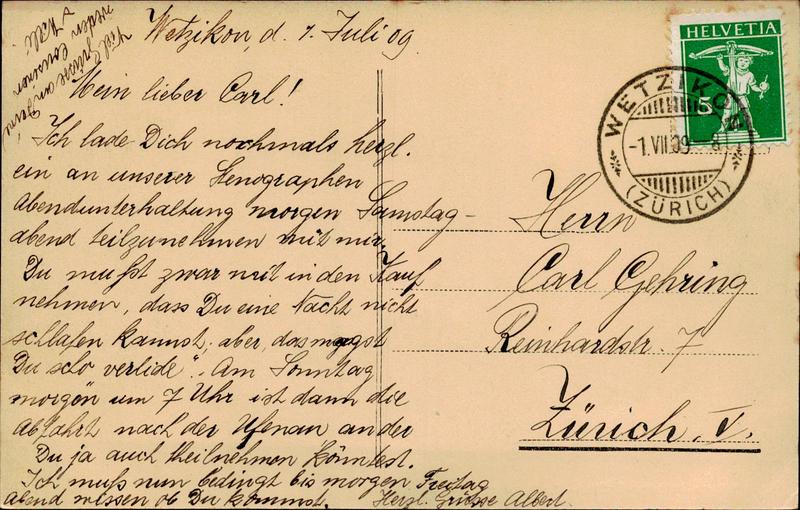 Wetzikon, d. 1. Juli 09.
Mein lieber Carl!
Ich lade Dich nochmals herzl.
ein an unserer Stenographen
Abendunterhaltung morgen Samstag-
abend teilzunehmen mit mir.
Du mußt zwar mit in den Kauf
nehmen, dass Du eine Nacht nicht
schlafen kannst, aber "das magst
Du scho verlide". Am Sonntag
morgen um 7 Uhr ist dann die
Abfahrt nach der Ufenau an der
Du ja auch theilnehmen könntest.
Ich muß nun bedingt bis morgen Freitag
abend wissen ob Du kommst. Herzl. Grüsse Albert.
Viel Grüsse an
HELVETIA
5
WETZIKON
-1.VII.09 8
(ZÜRICH)
Herrn
Carl Gehring
Reinhardstr. 7
Zürich. V.